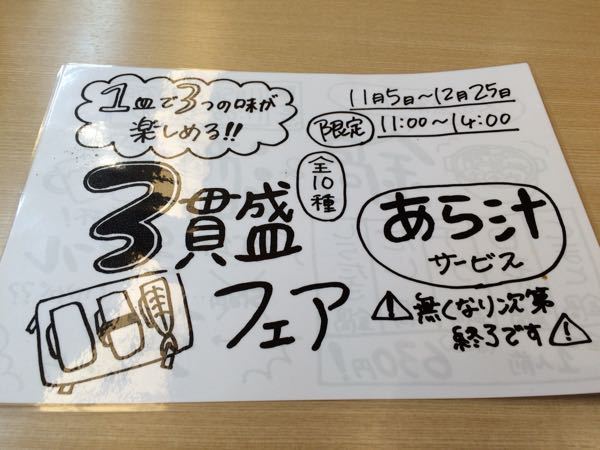 1皿で3つの味が
楽しめる!!
11月5日～12月25日
限定 11:00～14:00
3貫盛
全10種
フェア
あら汁
サービス
⚠無くなり次第
終了です⚠